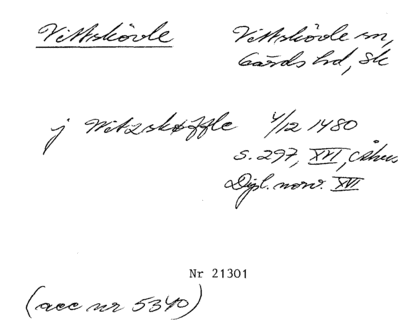 Vittskövle
Vittskövle sn,
Gärds hd, Sk
j Witzskøffle 4/12 1480
s. 297, XVI, Århus
Dipl. norv. XVI
Nr 21301
(acc nr 5340)